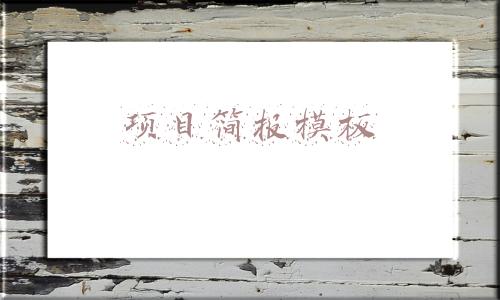 项目简报模板